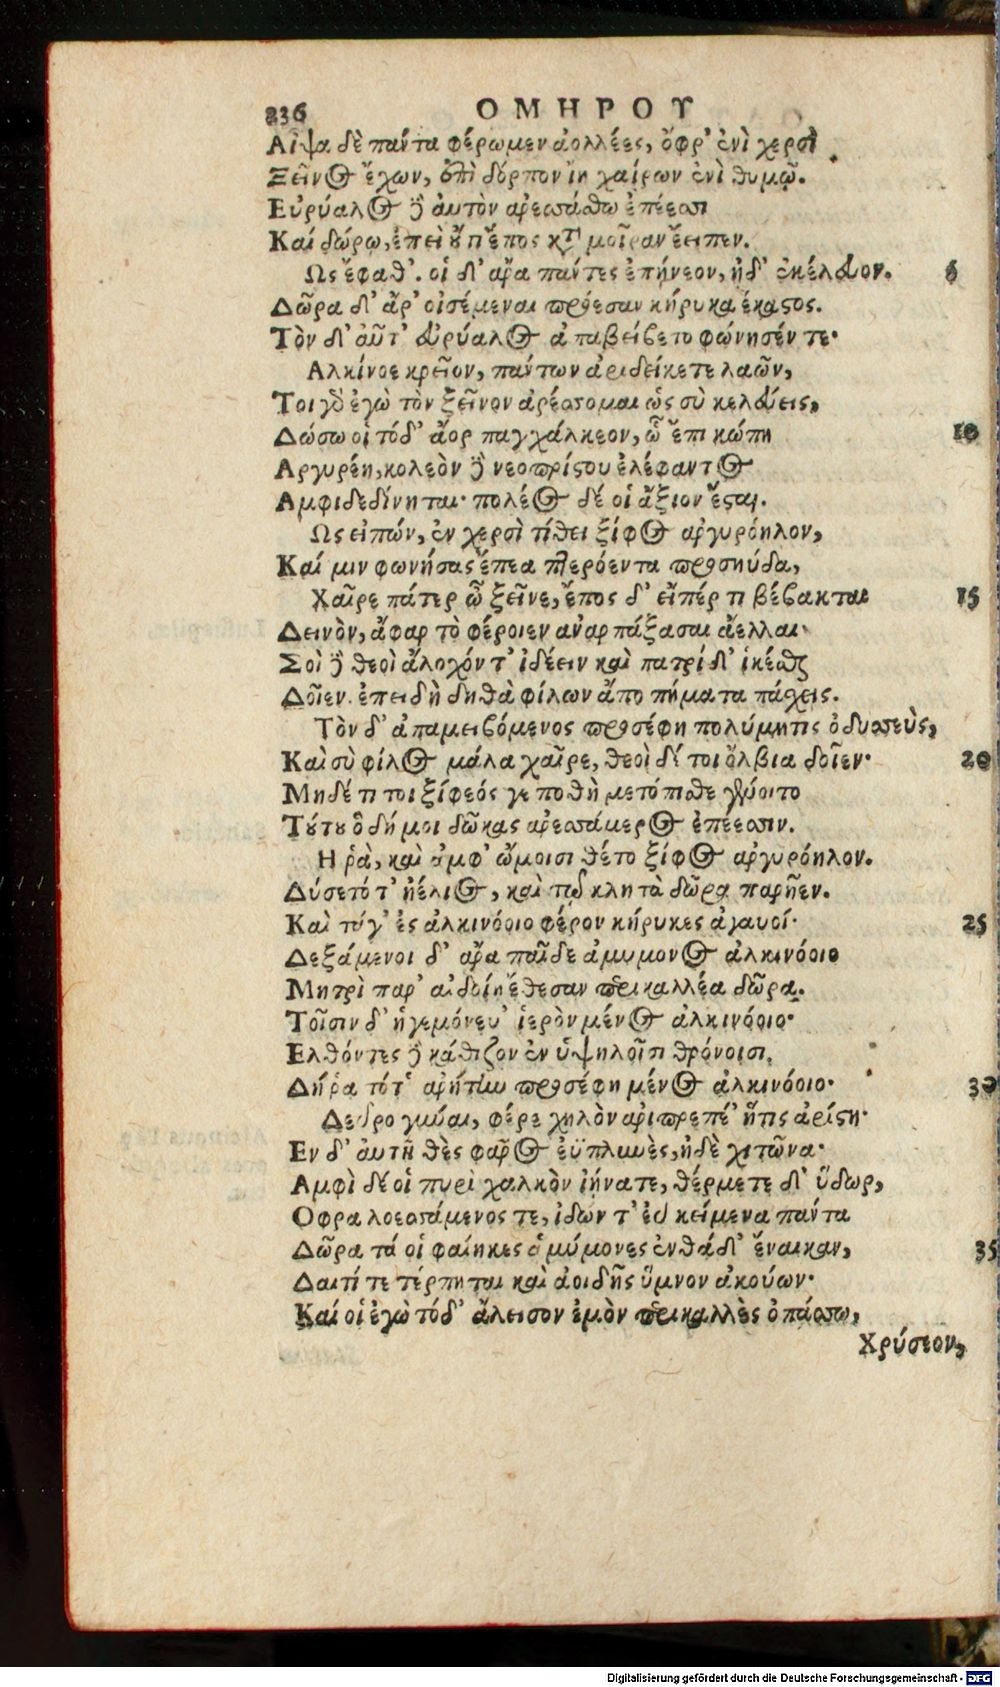 236 ΟΜΗΡΟΥ
Αἶψα δὲ πάντα φέρωμεν ἀολλέες, ὄφρ' ἐνὶ χερσὶ
Ξεῖνος ἔχων, ἐπὶ δόρπον ἴῃ χαίρων ἐνὶ θυμῷ.
Εὐρύαλος δὲ αὐτὸν ἀρεσσάσθω ἐπέεσσι
Καί δώρῳ, ἐπεὶ οὔ τι ἔπος κατὰ μοῖραν ἔειπεν.
Ως ἔφαθ'. οἱ δ' ἄρα πάντες ἐπῄνεον, ἠδ' ἐκέλευον. 5
Δῶρα δ' ἄρ' οἰσέμεναι πρόεσαν κήρυκα ἕκαστος.
Τὸν δ' αὖτ' εὐρύαλος ἀπαμείβετο φώνησέν τε·
Αλκίνοε κρεῖον, πάντων ἀριδείκετε λαῶν,
Τοιγὰρ ἐγὼ τὸν ξεῖνον ἀρέσσομαι ὡς σὺ κελεύεις,
Δώσω οἱ τόδ' ἄορ παγχάλκεον, ᾧ ἔπι κώπη 10
Αργυρέη, κολεὸν δὲ νεοπρίστου ἐλέφαντος
Αμφιδεδίνηται· πολέος δέ οἱ ἄξιον ἔσται.
Ως εἰπών, ἐν χερσὶ τίθει ξίφος ἀργυρόηλον,
Καί μιν φωνήσας ἔπεα πτερόεντα προσηύδα,
Χαῖρε πάτερ ὦ ξεῖνε, ἔπος δ' εἴπέρ τι βέβακται 15
Δεινὸν, ἄφαρ τὸ φέροιεν ἀναρπάξασαι ἄελλαι·
Σοὶ δὲ θεοὶ ἄλοχόν τ' ἰδέειν καὶ πατρίδ' ἱκέσθαι
Δοῖεν. ἐπειδὴ δηθὰ φίλων ἄπο πήματα πάσχεις.
Τὸν δ' ἀπαμειβόμενος προσέφη πολύμητις ὀδυσσεὺς,
Καὶ σὺ φίλος μάλα χαῖρε, θεοὶ δέ τοι ὄλβια δοῖεν· 20
Μηδέ τι τοι ξίφεός γε ποθὴ μετόπισθε γένοιτο
Τούτου ὃ δή μοι δῶκας ἀρεσσάμενος ἐπέεσσιν.
Η ῥὰ, καὶ ἀμφ' ὤμοισι θέτο ξίφος ἀργυρόηλον.
Δύσετό τ' ἠέλιος, καὶ τῷ κλητὰ δῶρα παρῆεν.
Καὶ τάγ' ἐς ἀλκινόοιο φέρον κήρυκες ἀγαυοί· 25
Δεξάμενοι δ' ἄρα παῖδε ἀμύμονος ἀλκινόοιο
Μητρὶ παρ' αἰδοίῃ ἔθεσαν περικαλλέα δῶρα.
Τοῖσιν δ' ἡγεμόνευ' ἱερὸν μένος ἀλκινόοιο·
Ελθόντες δὲ κάθιζον ἐν ὑψηλοῖσι θρόνοισι.
Δή ῥα τότ' ἀρήτην προσέφη μένος ἀλκινόοιο· 30
Δεῦρο γύναι, φέρε χηλὸν ἀριπρεπέ' ἥτις ἀρίστη·
Εν δ' αὐτῇ θὲς φᾶρος ἐϋπλυνὲς, ἠδὲ χιτῶνα·
Αμφὶ δέ οἱ πυρὶ χαλκὸν ἰήνατε, θέρμετε δ' ὕδωρ,
Οφρα λοεσσάμενος τε, ἰδών τ' εὖ κείμενα πάντα
Δῶρα τά οἱ φαίηκες ἀμύμονες ἐνθάδ' ἔνεικαν, 35
Δαιτί τε τέρπηται καὶ ἀοιδῆς ὕμνον ἀκούων·
Καί οἱ ἐγὼ τόδ' ἄλεισον ἐμὸν περικαλλὲς ὀπάσσω,
Χρύσεον,
Digitalisierung gefördert durch die Deutsche Forschungsgemeinschaft - DFG